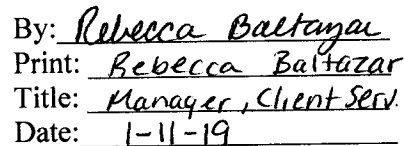 By: Rebecca Baltazar
Print: Rebecca Baltazar
Title: Manager, Client Serv.
Date: 1-11-19